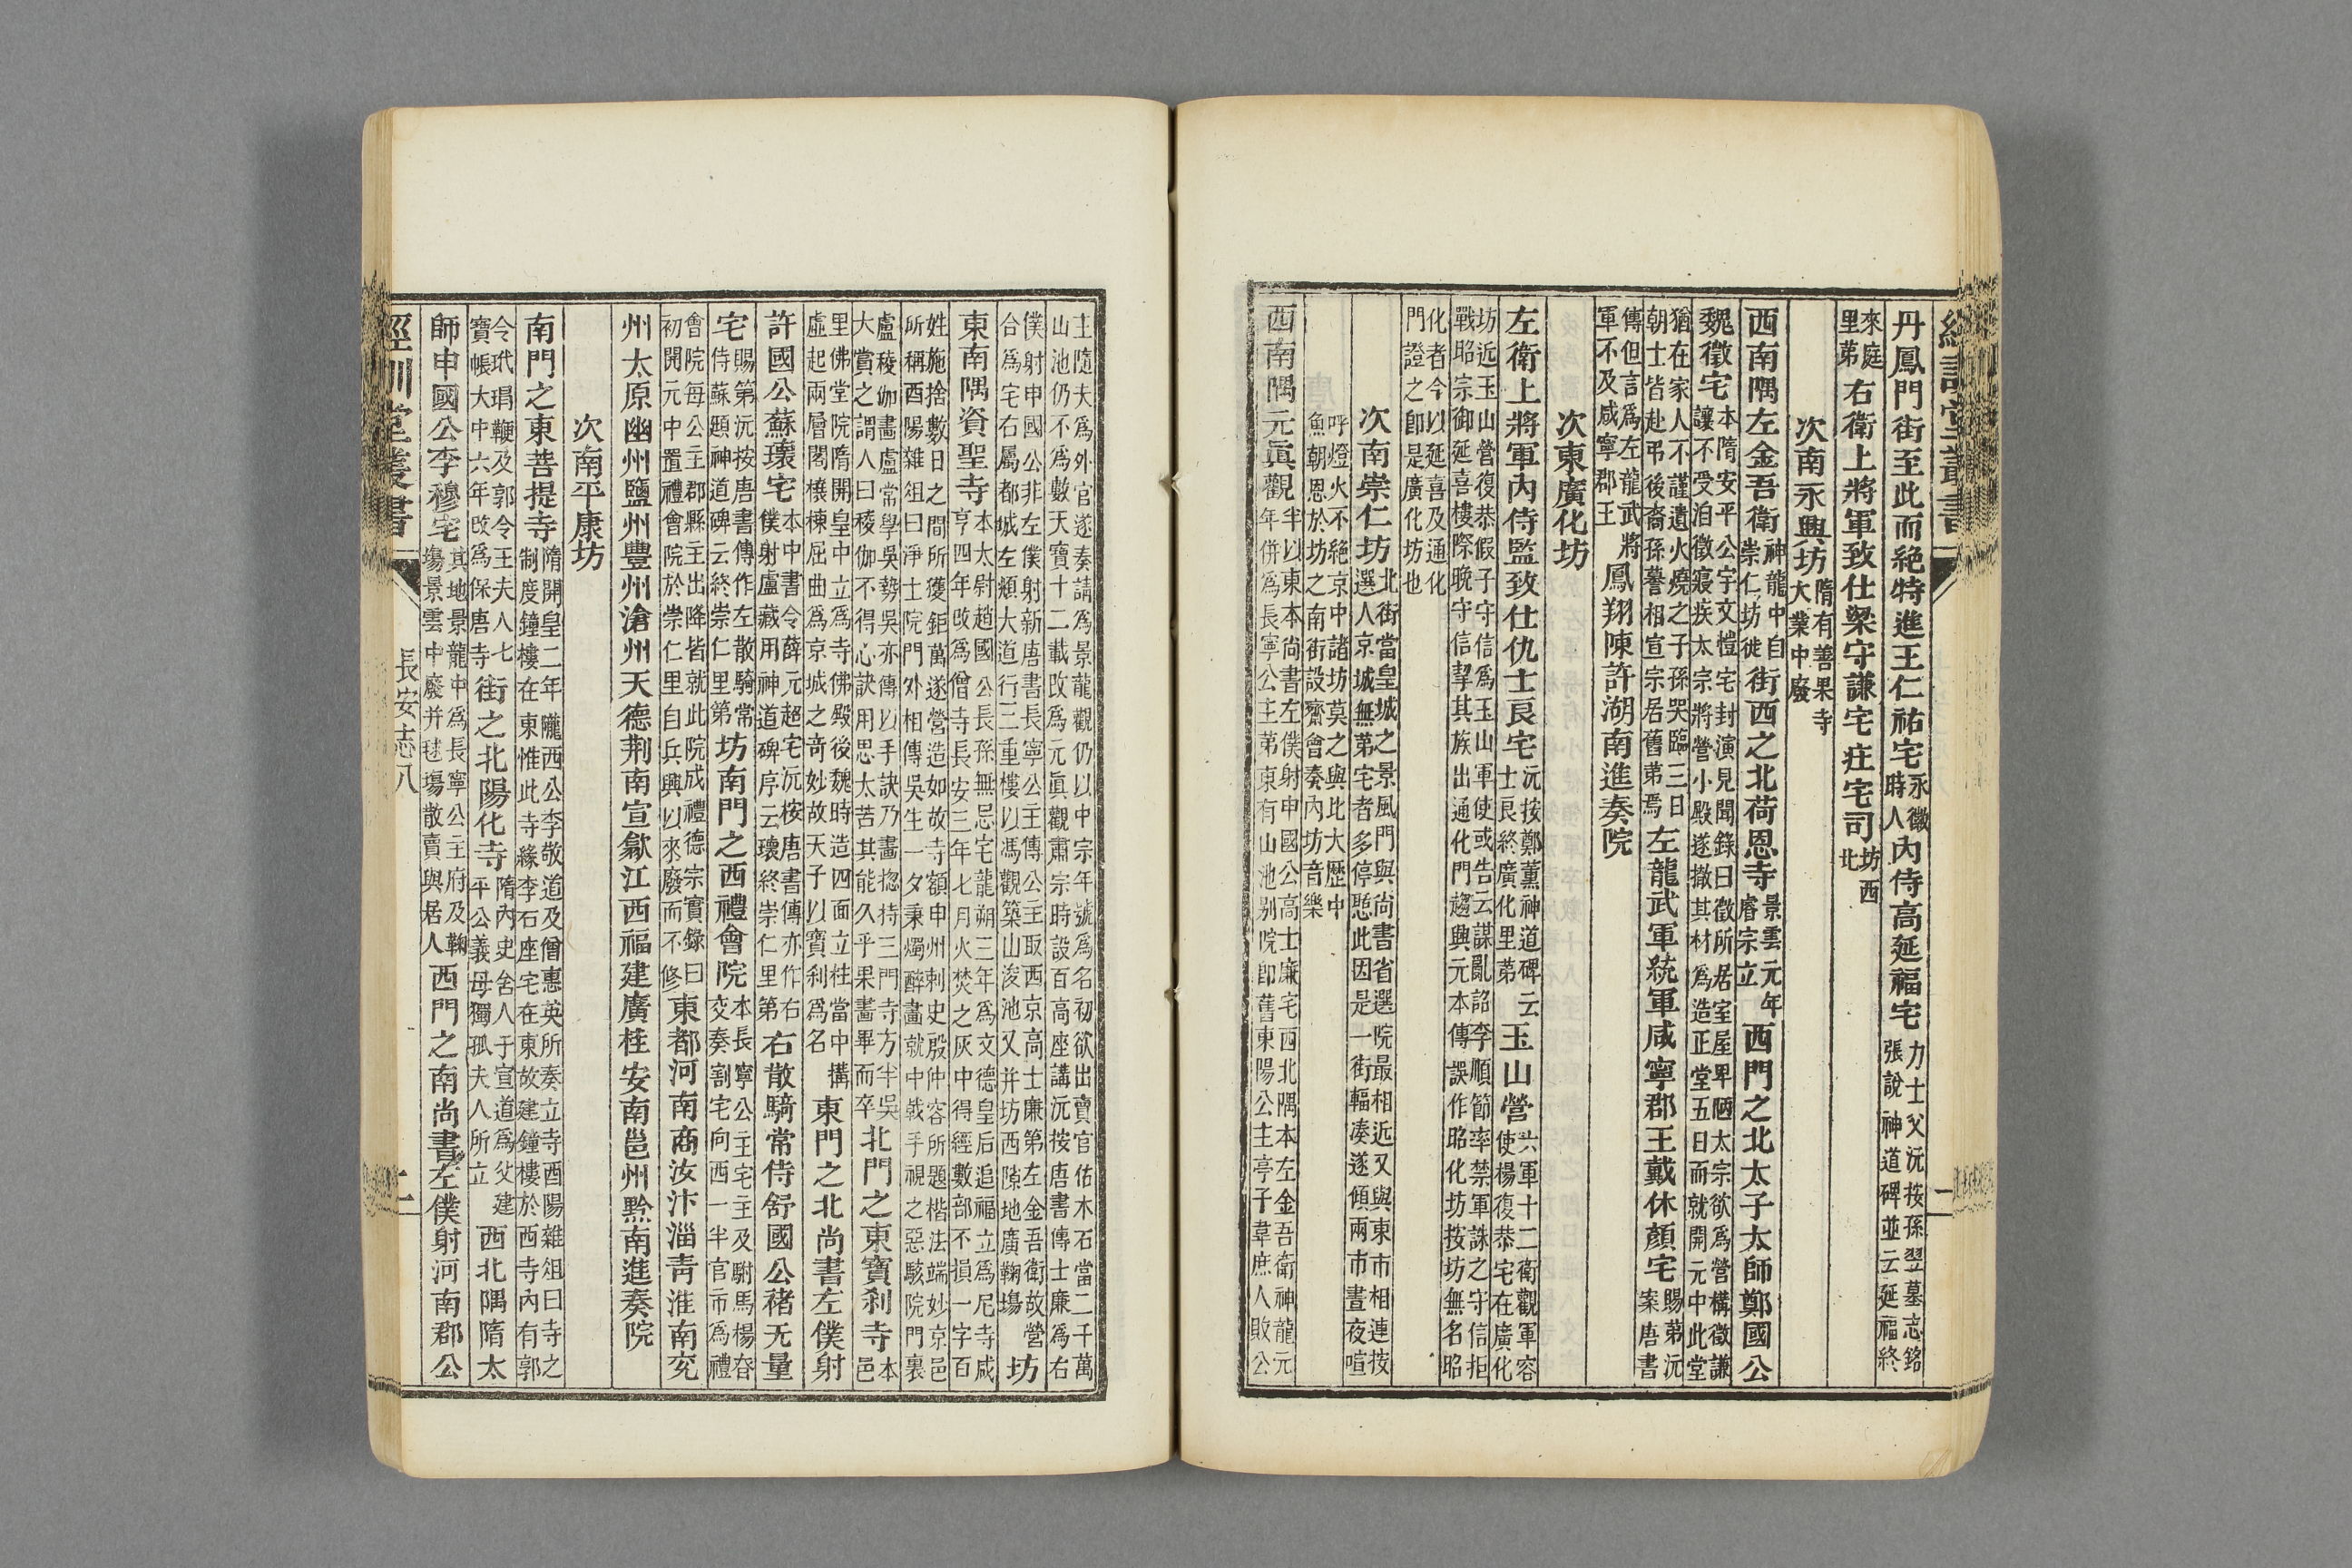 經訓堂叢書
二
丹鳳門街至此而絶特進王仁祐宅永徽時人內侍高延福宅力士父沅按孫翌墓志銘張說神道碑並云延福終
來庭里第右衛上將軍致仕梁守謙宅莊宅司坊西北
次南永興坊隋有善果寺大業中廢
西南隅左金吾衛神龍中自崇仁坊徙街西之北荷恩寺景雲元年睿宗立西門之北太子太師鄭國公
魏徵宅本隋安平公宇文愷宅封演見聞錄曰徵所居室屋卑陋太宗欲為營構徵謙讓不受洎徵寢疾太宗將營小殿遂撤其材為造正堂五日而就開元中此堂
猶在家人不謹遺火燒之子孫哭臨三日朝士皆赴弔後裔孫謩相宣宗居舊第焉左龍武軍統軍咸寧郡王戴休顏宅賜第沅案唐書
傳但言為左龍武將軍不及咸寧郡王鳳翔陳許湖南進奏院
次東廣化坊
左衛上將軍內侍監致仕仇士良宅沅按鄭薰神道碑云士良終廣化里第玉山營六軍十二衛觀軍容使楊復恭宅在廣化
坊近玉山營復恭假子守信為玉山軍使或告云謀亂詔李順節率禁軍誅之守信拒戰昭宗御延喜樓際晚守信挈其族出通化門趨興元本傳誤作昭化坊按坊無名昭
化者今以延喜及通化門證之即是廣化坊也
次南崇仁坊北街當皇城之景風門與尚書省選院最相近又與東市相連按選人京城無第宅者多停憩此因是一街輻湊遂傾兩市晝夜喧
呼燈火不絕京中諸坊莫之與比大歷中魚朝恩於坊之南街設齋會奏內坊音樂
西南隅元真觀半以東本尚書左僕射申國公高士廉宅西北隅本左金吾衛神龍元年併為長寧公主第東有山池別院即舊東陽公主亭子韋庶人敗公
主隨夫為外官遂奏請為景龍觀仍以中宗年號為名初欲出賣官估木石當二千萬山池仍不為數天寶十二載改為元真觀肅宗時設百高座講沅按唐書傳士廉為右
僕射申國公非左僕射新唐書長寧公主傳公主取西京高士廉第左金吾衛故營合為宅右屬都城左頫大道行三重樓以馮觀築山浚池又并坊西隙地廣鞠場坊
東南隅資聖寺本太尉趙國公長孫無忌宅龍朔三年為文德皇后追福立為尼寺咸亨四年改為僧寺長安三年七月火焚之灰中得經數部不損一字百
姓施捨數日之間所獲鉅萬遂營造如故寺額申州刺史殷仲容所題楷法端妙京邑所稱酉陽雜俎曰淨土院門外相傳吳生一夕秉燭醉畫就中戟手視之惡駭院門裏
盧稜伽畫盧常學吳勢吳亦傳以手訣乃畫摠持三門寺方半吳大賞之謂人曰稜伽不得心訣用思太苦其能久乎果畫畢而卒北門之東寶剎寺本邑
里佛堂院隋開皇中立為寺佛殿後魏時造四面立柱當中構虛起兩層閣榱棟屈曲為京城之奇妙故天子以寶剎為名東門之北尚書左僕射
許國公蘇瓌宅本中書令薛元超宅沅按唐書傳亦作右僕射盧藏用神道碑序云瓌終崇仁里第右散騎常侍舒國公褚无量
宅賜第沅按唐書傳作左散騎常侍蘇頲神道碑云終崇仁里第坊南門之西禮會院本長寧公主宅主及駙馬楊眘交奏割宅向西一半官市為禮
會院每公主郡縣主出降皆就此院成禮德宗實錄曰初開元中置禮會院於崇仁里自兵興以來廢而不修東都河南商汝汴淄青淮南兖
州太原幽州鹽州豐州滄州天德荆南宣歙江西福建廣桂安南邕州黔南進奏院
次南平康坊
南門之東菩提寺隋開皇二年隴西公李敬道及僧惠英所奏立寺酉陽雜俎曰寺之制度鐘樓在東惟此寺緣李石座宅在東故建鐘樓於西寺內有郭
令玳瑁鞭及郭令王夫人七寶帳大中六年改為保唐寺街之北陽化寺隋內史舍人于宣道為父建平公義母獨孤夫人所立西北隅隋太
師申國公李穆宅其地景龍中為長寧公主府及鞠場景雲中廢并毬場散賣與居人西門之南尚書左僕射河南郡公
經訓堂叢書
長安志八
二